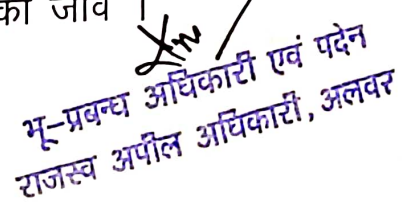 का जावे ।
भू-प्रबन्ध अधिकारी एवं पदेन
राजस्व अपील अधिकारी, अलवर